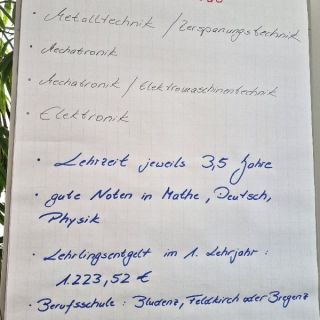 • Metalltechnik / Zerspanungstechnik
• Mechatronik
• Mechatronik / Elektromaschinentechnik
• Elektronik
• Lehrzeit jeweils 3,5 Jahre
• gute Noten in Mathe, Deutsch,
Physik
• Lehrlingsentgelt im 1. Lehrjahr:
1.223,52 €
• Berufsschule: Bludenz, Feldkirch oder Bregenz